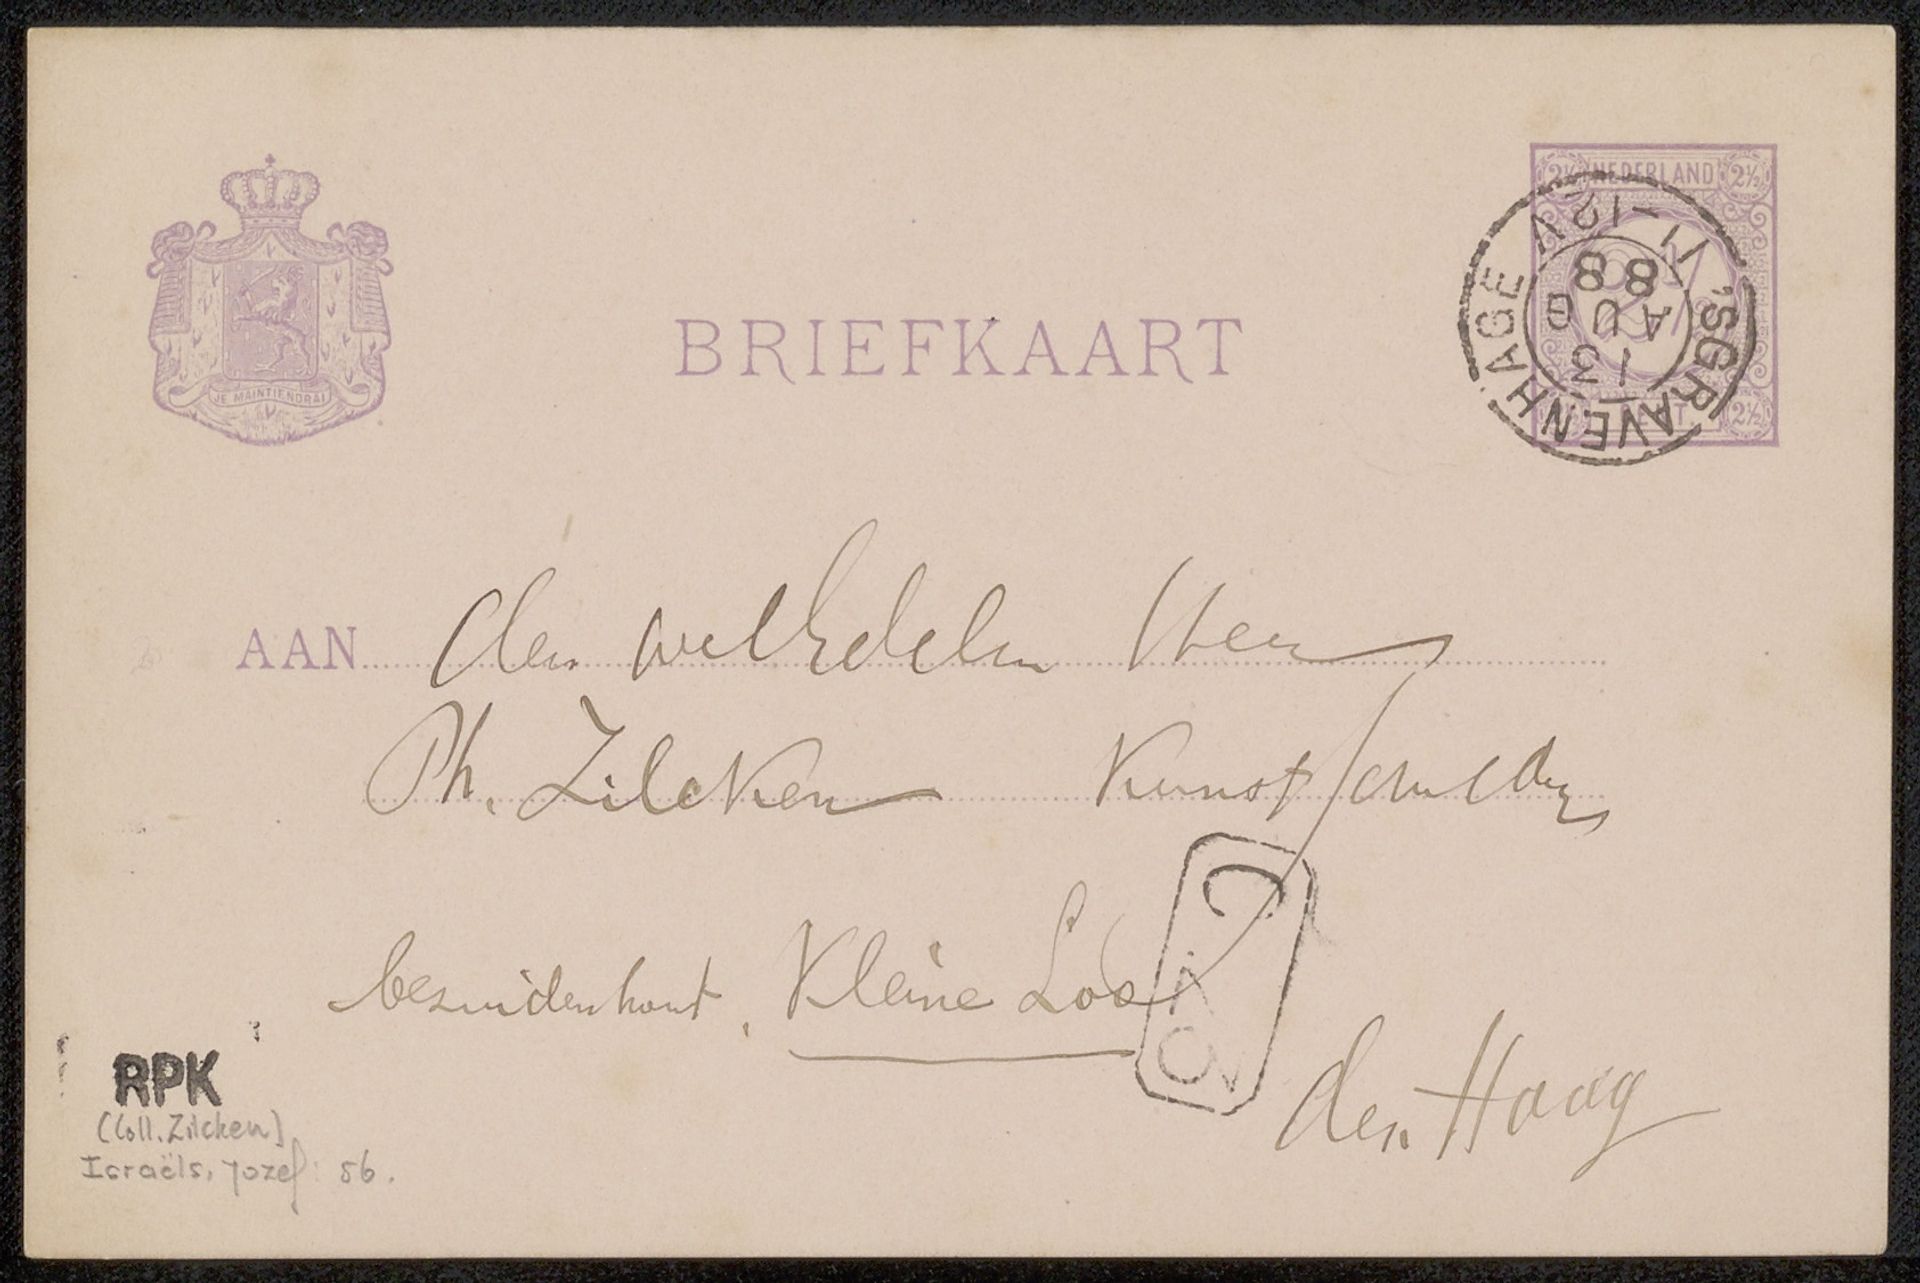 NEDERLAND
2½ 2½
'SGRAVENHAGE
11-12 V
13
AU
88
CENT
2½
BRIEFKAART
JE MAINTIENDRAI
AAN den weledelen Heer
Ph. Zilcken Kunstschilder
bezuidenhout, Kleine Loo
den Haag
RPK
(Coll. Zilcken)
Israëls, Jozef: 56.